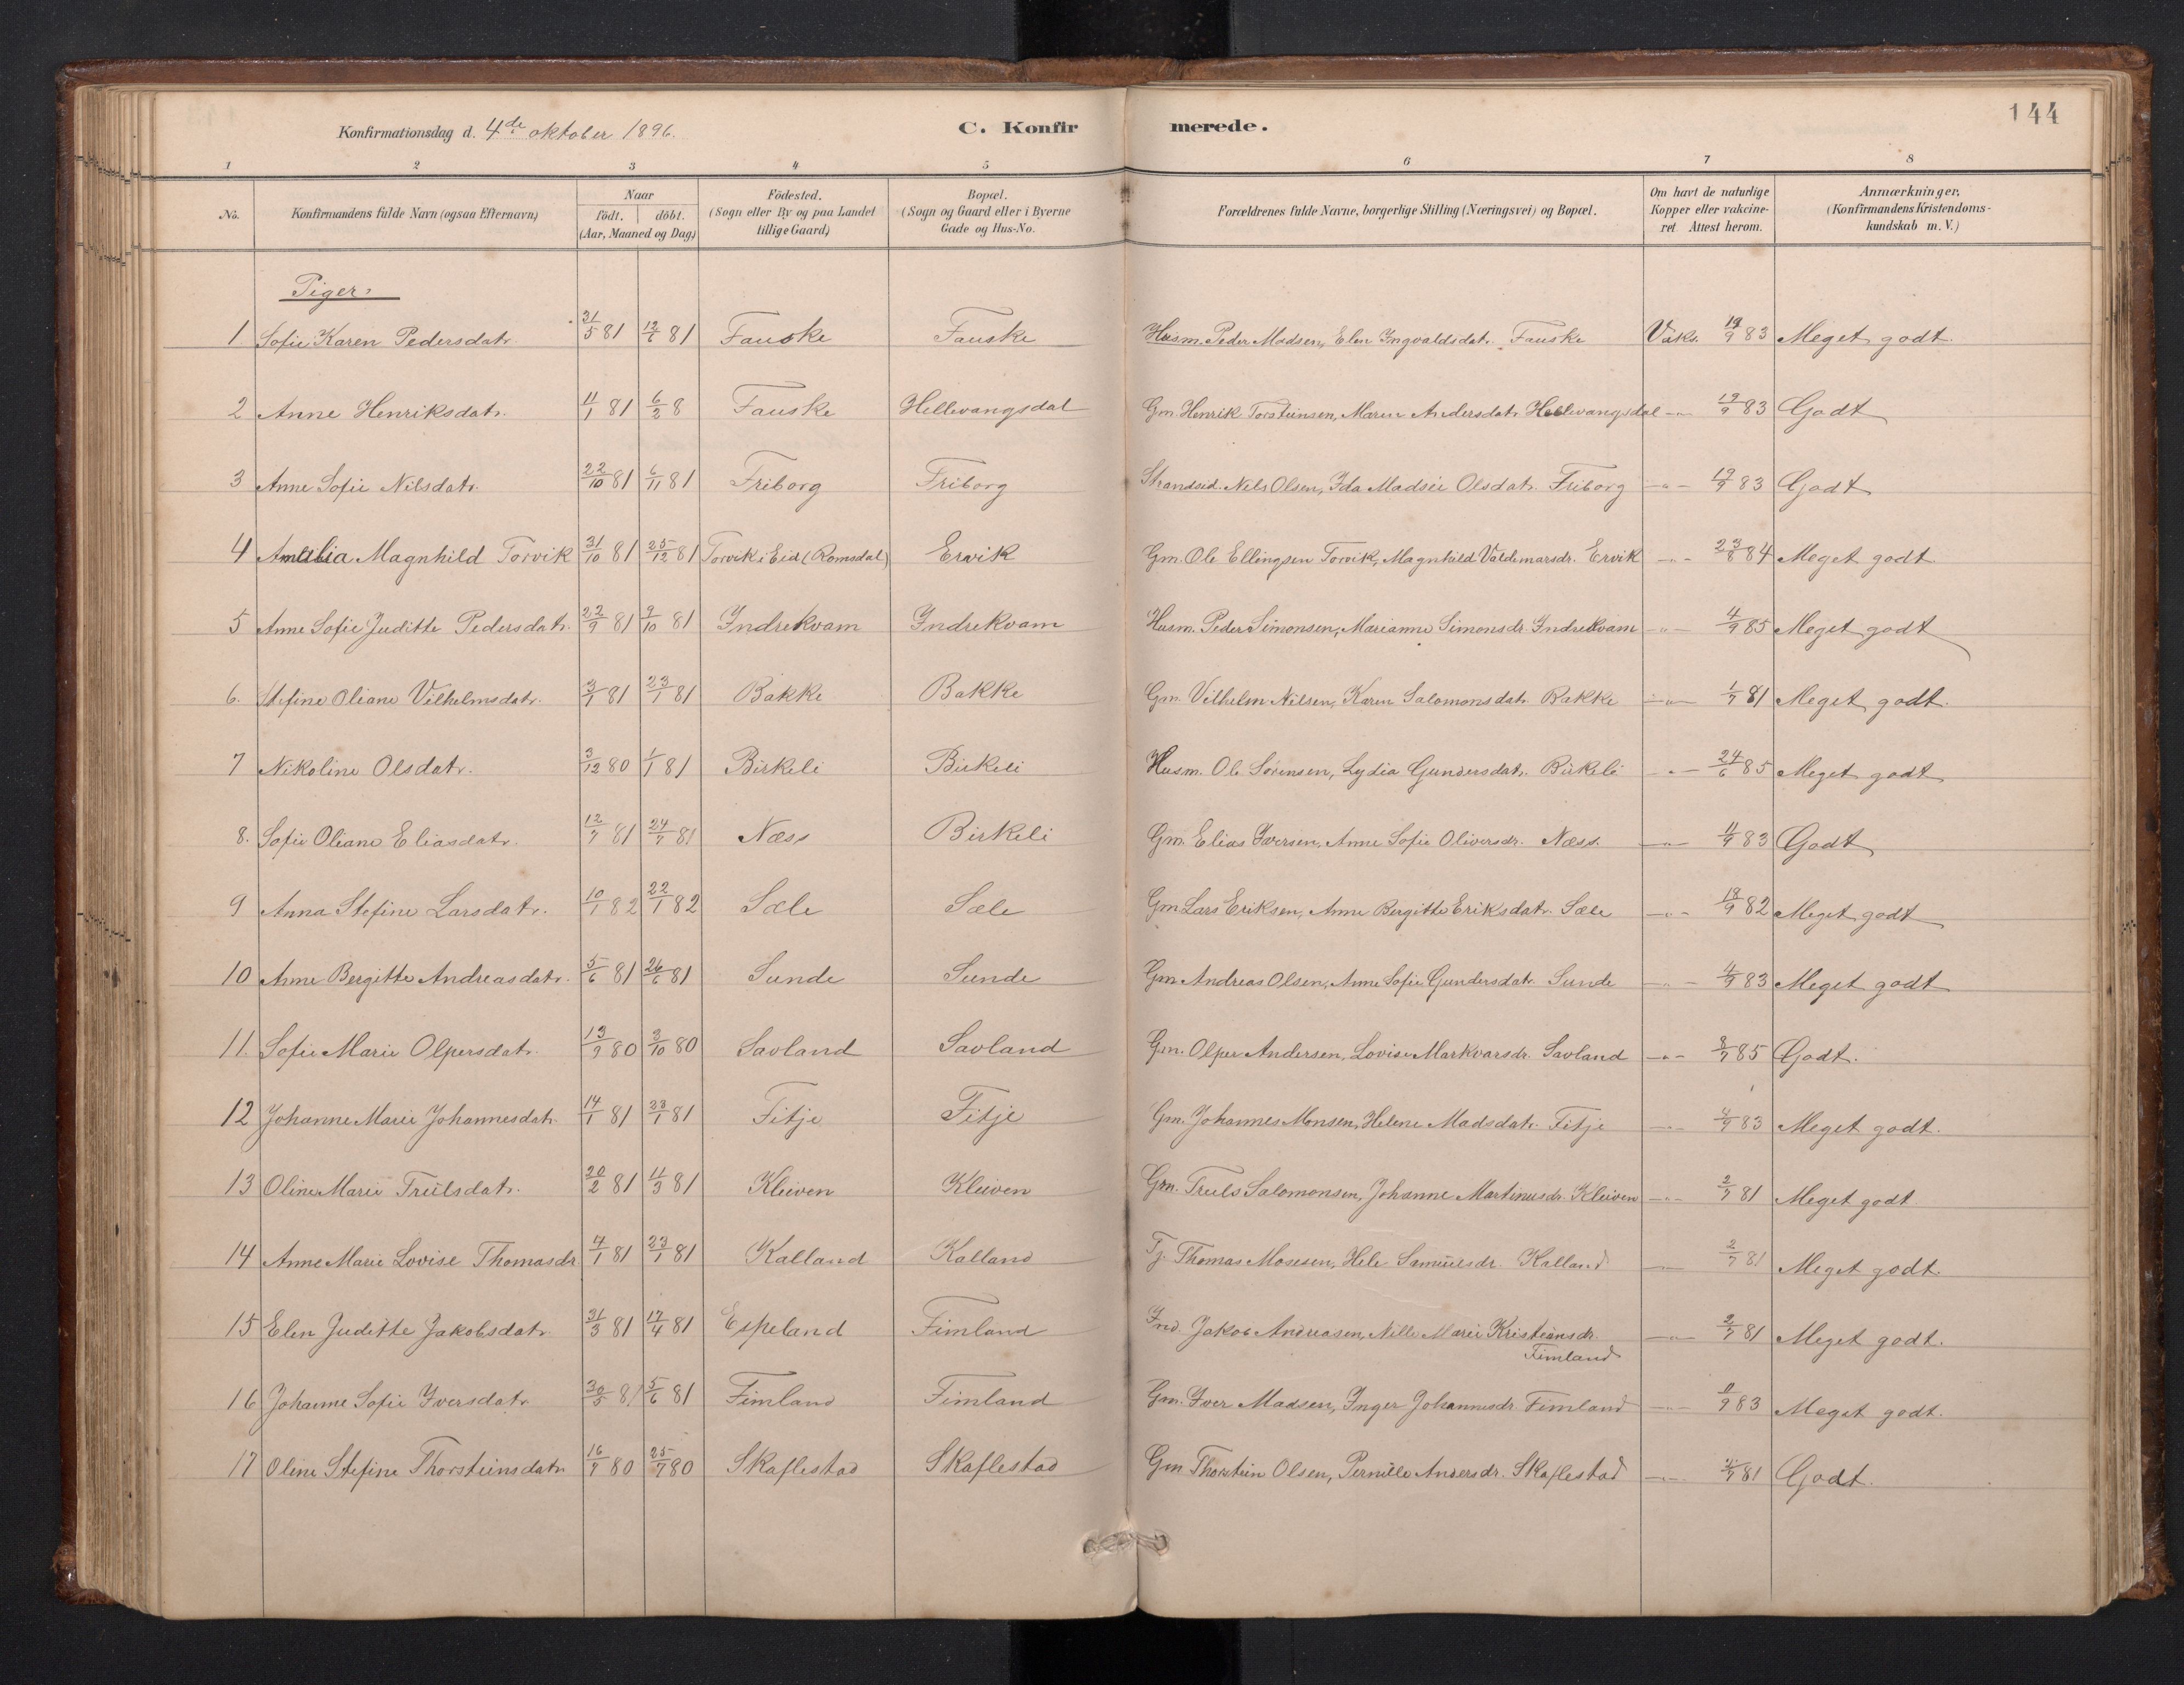 144
Konfirmationsdag d. 4de oktober 1896. C. Konfirmerede.
1 2 3 4 5 6 7 8
No. Konfirmandens fulde Navn (ogsaa Efternavn) Naar født. døbt. (Aar, Maaned og Dag) Födested. (Sogn eller By og paa Landet tillige Gaard) Bopæl. (Sogn og Gaard eller i Byerne Gade og Hus-No. Forældrenes fulde Navne, borgerlige Stilling (Næringsvei) og Bopæl. Om havt de naturlige Kopper eller vakcineret. Attest herom. Anmærkninger. (Konfirmandens Kristendomskundskab m. V.)
Piger:
1. Sofie Karen Pedersdatr. 31/5 81 12/6 81 Fauske Fauske Husm. Peder Madsen, Elen Ingvaldsdatr. Fauske Vaks. 19/9 83 Meget godt.
2 Anne Henriksdatr. 11/1 81 6/2 8 Fauske Hellevangsdal Gm. Henrik Torsteinsen, Maren Andersdatr. Hellevangsdal -"- 19/9 83 Godt
3 Anne Sofie Nilsdatr. 22/10 81 6/11 81 Friborg Friborg Strandsid. Nils Olsen, Ida Madsie Olsdatr. Friborg -"- 19/9 83 Godt
4 Amalia Magnhild Torvik 31/10 81 25/12 81 Torvik i Eid (Romsdal) Ervik Gm. Ole Ellingsen Torvik, Magnhild Valdemarsdr. Ervik -"- 23/8 84 Meget godt
5 Anne Sofie Juditte Pedersdatr. 22/9 81 9/10 81 Indrekvam Indrekvam Husm. Peder Simonsen, Marianne Simonsdr. Indrekvam -"- 4/9 85 Meget godt
6. Stefine Oliane Vilhelmsdatr. 3/1 81 23/1 81 Bakke Bakke Gm. Vilhelm Nilsen, Karen Salomonsdatr. Bakke -"- 1/7 81 Meget godt.
7 Nikoline Olsdatr. 3/12 80 1/1 81 Birkeli Birkeli Husm. Ole Sørensen, Lydia Gundersdatr. Birkeli -"- 24/6 85 Meget godt
8. Sofie Oliane Eliasdatr. 12/7 81 24/7 81 Næss Birkeli Gm. Elias Iversen, Anne Sofie Oliversdr. Næss. -"- 11/9 83 Godt
9 Anna Stefine Larsdatr. 10/1 82 22/1 82 Sæle Sæle Gm. Lars Eriksen, Anne Bergitte Eriksdatr. Sæle -"- 18/9 82 Meget godt
10 Anne Bergitte Andreasdatr. 5/6 81 26/6 81 Sunde Sunde Gm. Andreas Olsen, Anne Sofie Gundersdatr. Sunde -"- 4/9 83 Meget godt
11. Sofie Marie Olpersdatr. 13/9 80 3/10 80 Savland Savland Gm. Olper Andersen, Lovise Markvarsdr. Savland -"- 8/7 85 Godt.
12 Johanne Marie Johannesdatr. 14/1 81 23/1 81 Fitje Fitje Gm. Johannes Monsen, Helene Madsdatr. Fitje -"- 4/9 83 Meget godt.
13 Oline Marie Trulsdatr. 20/2 81 11/3 81 Kleiven Kleiven Gm. Truls Salomonsen, Johanne Martinusdr. Kleiven -"- 2/7 81 Meget godt
14 Anne Marie Lovise Thomasdr 4/1 81 23/1 81 Kalland Kalland Tj. Thomas Mosesen, Hele Samuelsdr. Kalland -"- 2/7 81 Meget godt.
15 Elen Juditte Jakobsdatr. 31/3 81 17/4 81 Espeland Fimland Ind. Jakob Andreasen, Nille Marie Kristiansdr. -"- 2/7 81 Meget godt.
Fimland
16 Johanne Sofie Iversdatr. 30/5 81 5/6 81 Fimland Fimland Gm. Iver Madsen, Inger Johannesdr. Fimland -"- 11/9 83 Meget godt.
17 Oline Stefine Thorsteinsdatr 16/7 80 25/7 80 Skaflestad Skaflestad Gm. Thorstein Olsen, Pernille Andersdr. Skaflestad -"- 2/7 81 Godt.